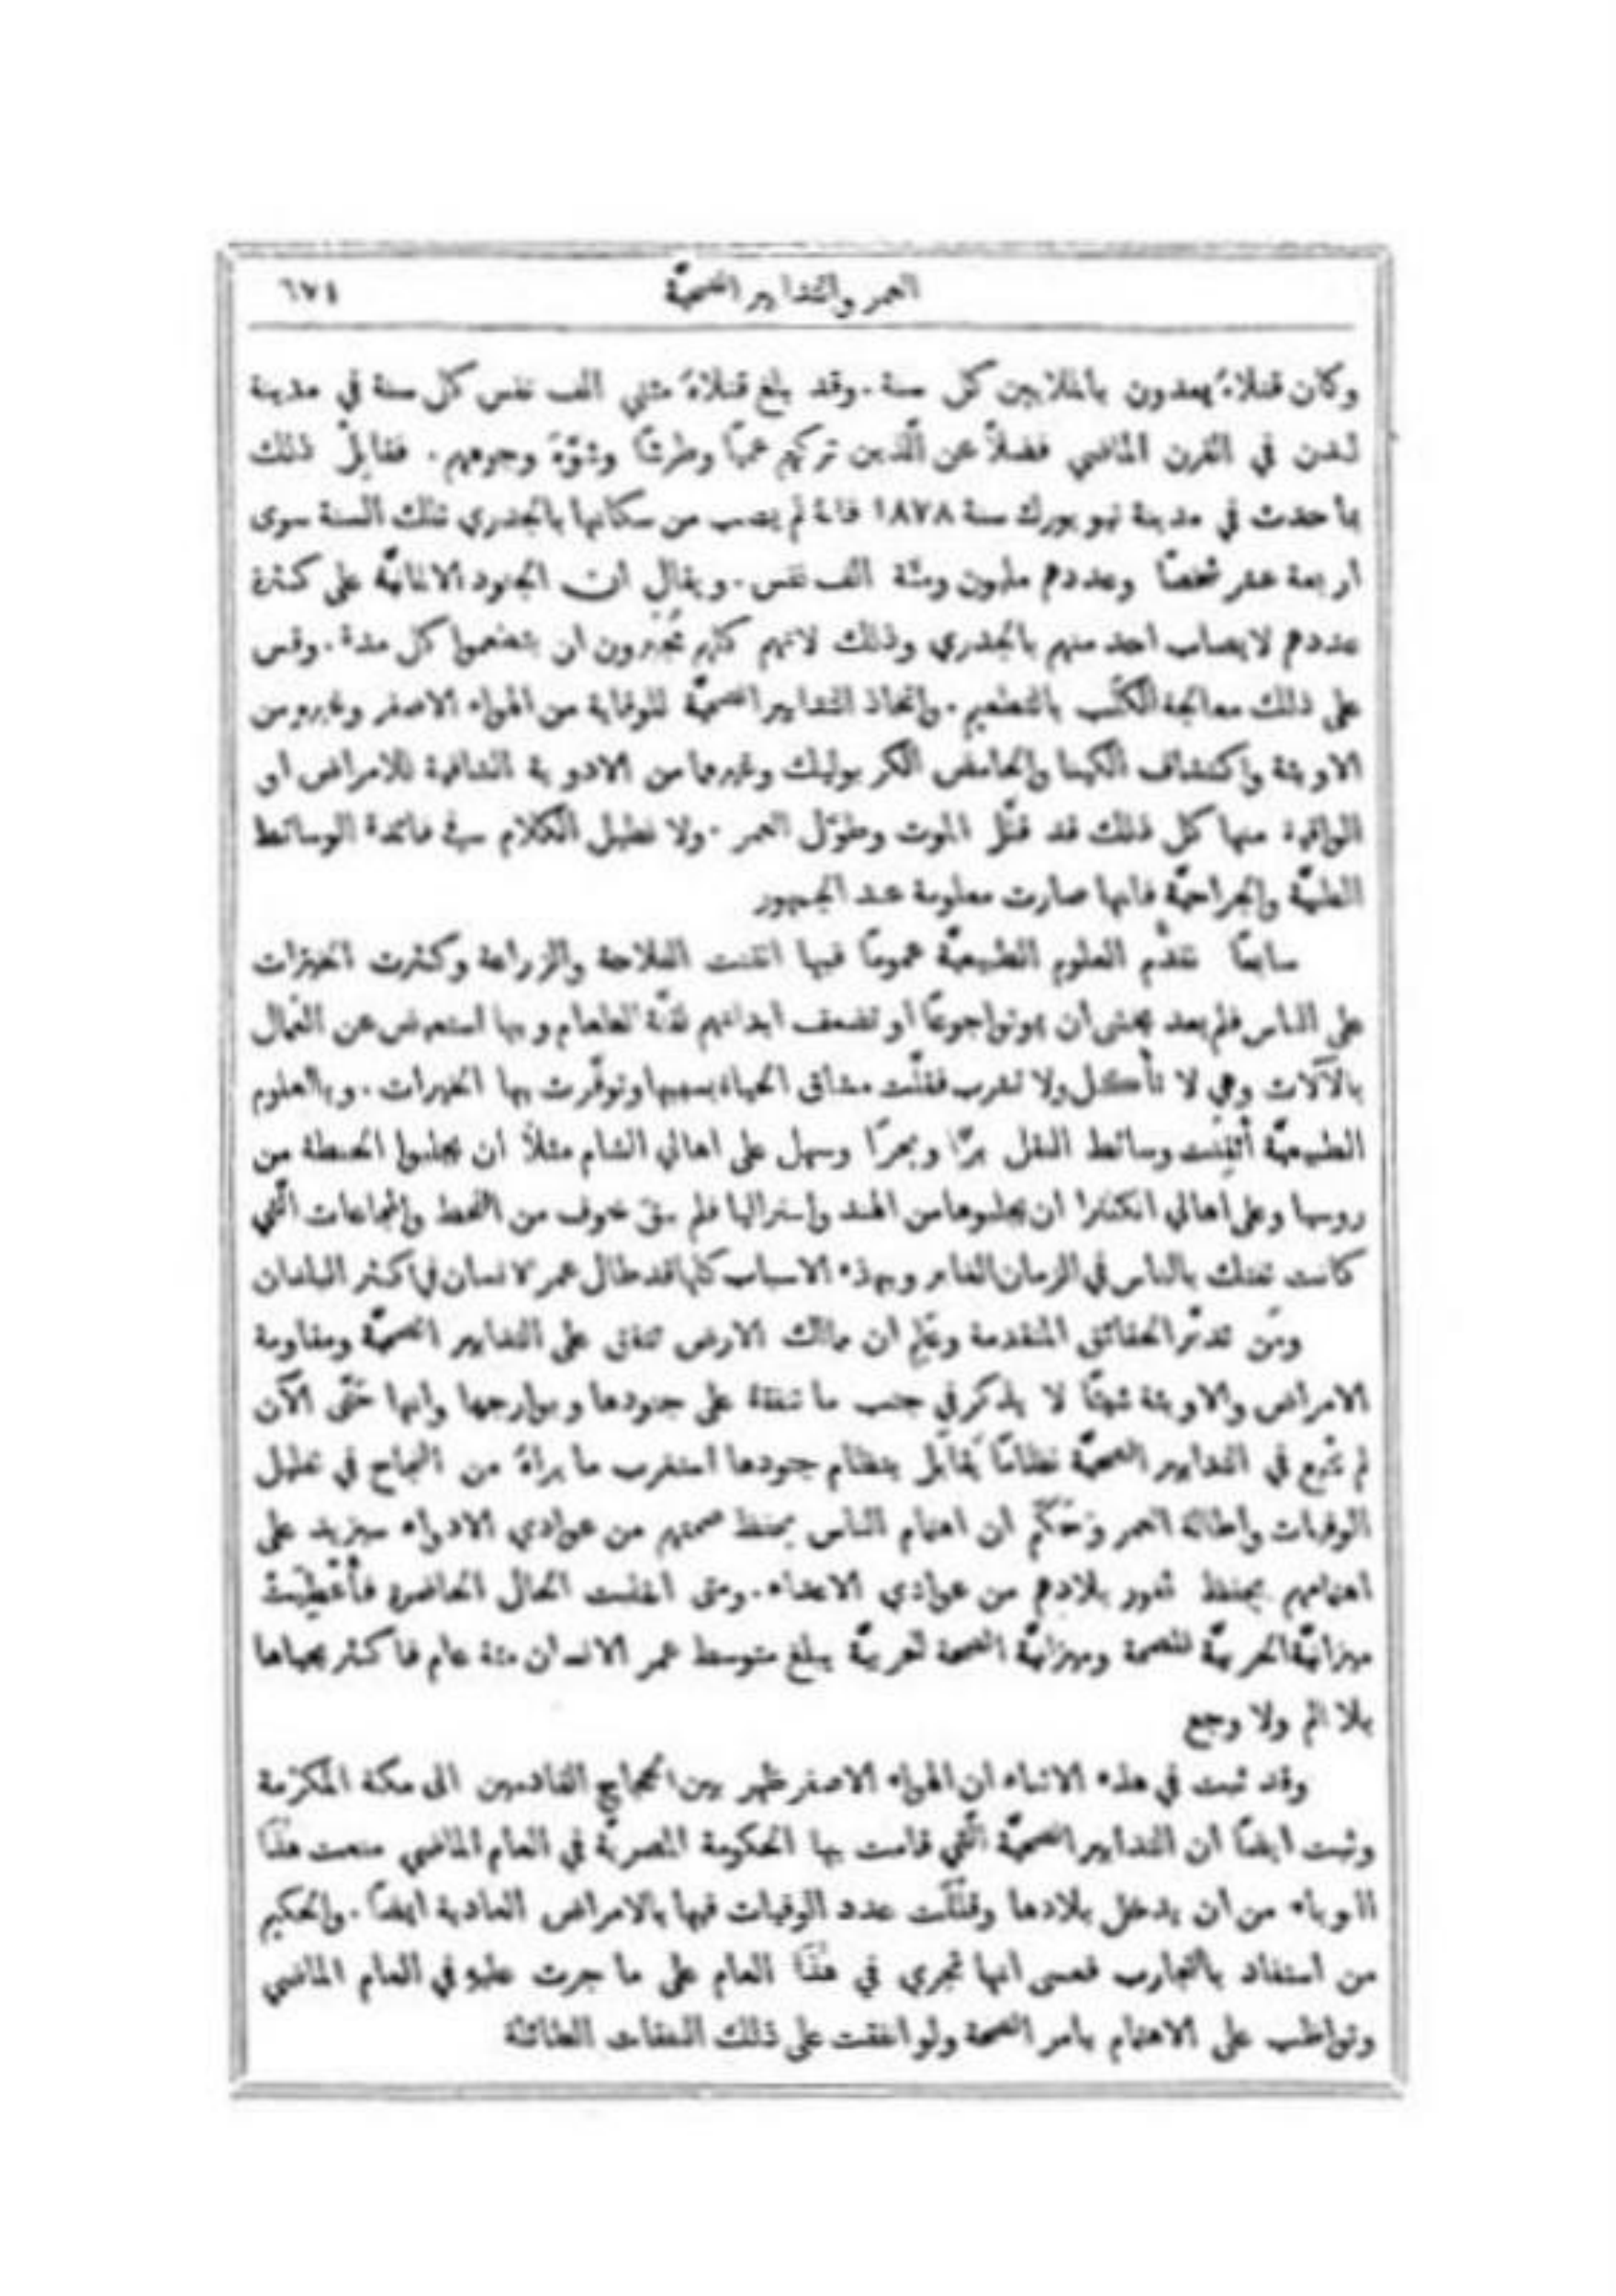 العمر والتدابير الصحيَّة ٦٧٤
وكان قتلاهُ يعدون بالملايين كل سنة. وقد بلغ قتلاهُ مئتي الف نفس كل سنة في مدينة
لندن في القرن الماضي فضلاً عن الَّذين تركهم عميًا وطرشًا وشوَّهَ وجوههم. فقابِلْ ذلك
بما حدث في مدينة نيويورك سنة ١٨٧٨ فانهُ لم يصب من سكانها بالجدري تلك السنة سوى
اربعة عشر شخصًا وعددهم مليون ومئة الف نفس. ويقال ان الجنود الالمانيَّة على كثرة
عددهم لا يصاب احد منهم بالجدري وذلك لانهم كلهم يُجبَرون ان يتطعموا كل مدة. وقس
على ذلك معالجة الكَلَب بالتطعيم. واتخاذ التدابير الصحيَّة للوقاية من الهواء الاصفر وغيرهِ من
الاوبئة واكتشاف الكينا والحامض الكربوليك وغيرها من الادوية الشافية للامراض او
الواقية منها كل ذلك قد قلَّل الموت وطوَّل العمر. ولا نطيل الكلام في فائدة الوسائط
الطبيَّة والجراحيَّة فانها صارت معلومة عند الجمهور
سابعًا تقدُّم العلوم الطبيعيَّة عمومًا فبها اتقنت الفلاحة والزراعة وكثرت الخيرات
على الناس فلم يعد يخشى أن يموتوا جوعًا او تضعف ابدانهم لقلَّة الطعام وبها استعيض عن العمال
بالآلات وهي لا تأكل ولا تشرب فقلَّت مشاق الحياة بسببها وتوفَّرت بها الخيرات. وبالعلوم
الطبيعيَّة أُتقِنَت وسائط النقل برًّا وبحرًا وسهل على اهالي الشام مثلاً ان يجلبوا الحنطة من
روسيا وعلى اهالي انكلترا ان يجلبوها من الهند واستراليا فلم يبقَ خوف من القحط والمجاعات الَّتي
كانت تفتك بالناس في الزمان الغابر وبهذه الاسباب كلها قد طال عمر الانسان في اكثر البلدان
ومَن تدبَّر الحقائق المتقدمة وعَلِم ان ممالك الارض تنفق على التدابير الصحيَّة ومقاومة
الامراض والاوبئة شيئًا لا يذكر في جنب ما تنفقهُ على جنودها وبوارجها وانها حَتَّى الآن
لم تتَّبع في التدابير الصحيَّة نظامًا يُقابَل بنظام جنودها استغرب ما يراهُ من النجاح في تقليل
الوفيات واطالة العمر وحَكَمَ ان اهتمام الناس بحفظ صحتهم من عوادي الادواء سيزيد على
اهتمامهم بحفظ ثغور بلادهم من عوادي الاعداء. ومتى انقلبت الحال الحاضرة فأُعْطِيَت
ميزانيَّة الحربيَّة للصحة وميزانيَّة الصحة للحربيَّة يبلغ متوسط عمر الانسان مئة عام فاكثر يحياها
بلا الم ولا وجع
وقد ثبت في هذه الاثناء ان الهواء الاصفر ظهر بين الحجاج القادمين الى مكة المكرَّمة
وثبت ايضًا ان التدابير الصحيَّة الَّتي قامت بها الحكومة المصريَّة في العام الماضي منعت هٰذَا
الوباء من ان يدخل بلادها وقلَّلت عدد الوفيات فيها بالامراض العادية ايضًا. والحكيم
من استفاد بالتجارب فعسى انها تجري في هٰذَا العام على ما جرت عليهِ في العام الماضي
وتواظب على الاهتمام بامر الصحة ولو انفقت على ذلك النفقات الطائلة